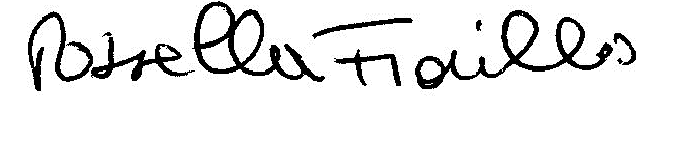 Rossella Fiorillo